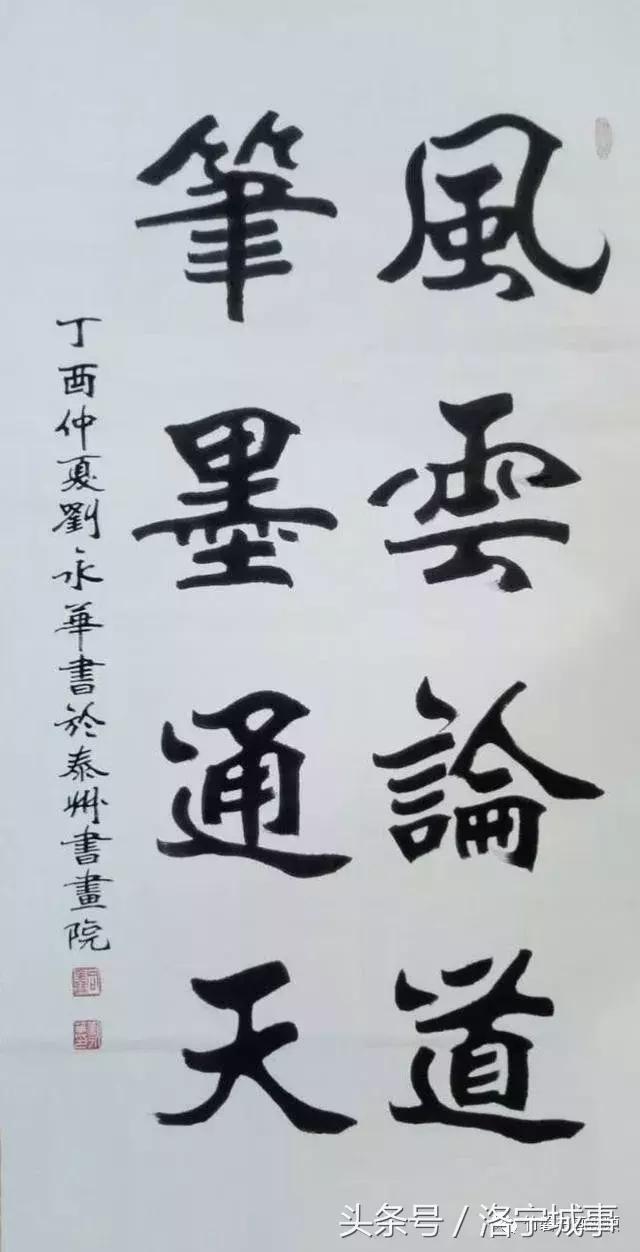 風雲論道
筆墨通天
丁酉仲夏劉永華書於泰州書畫院
头条号／洛宁城事